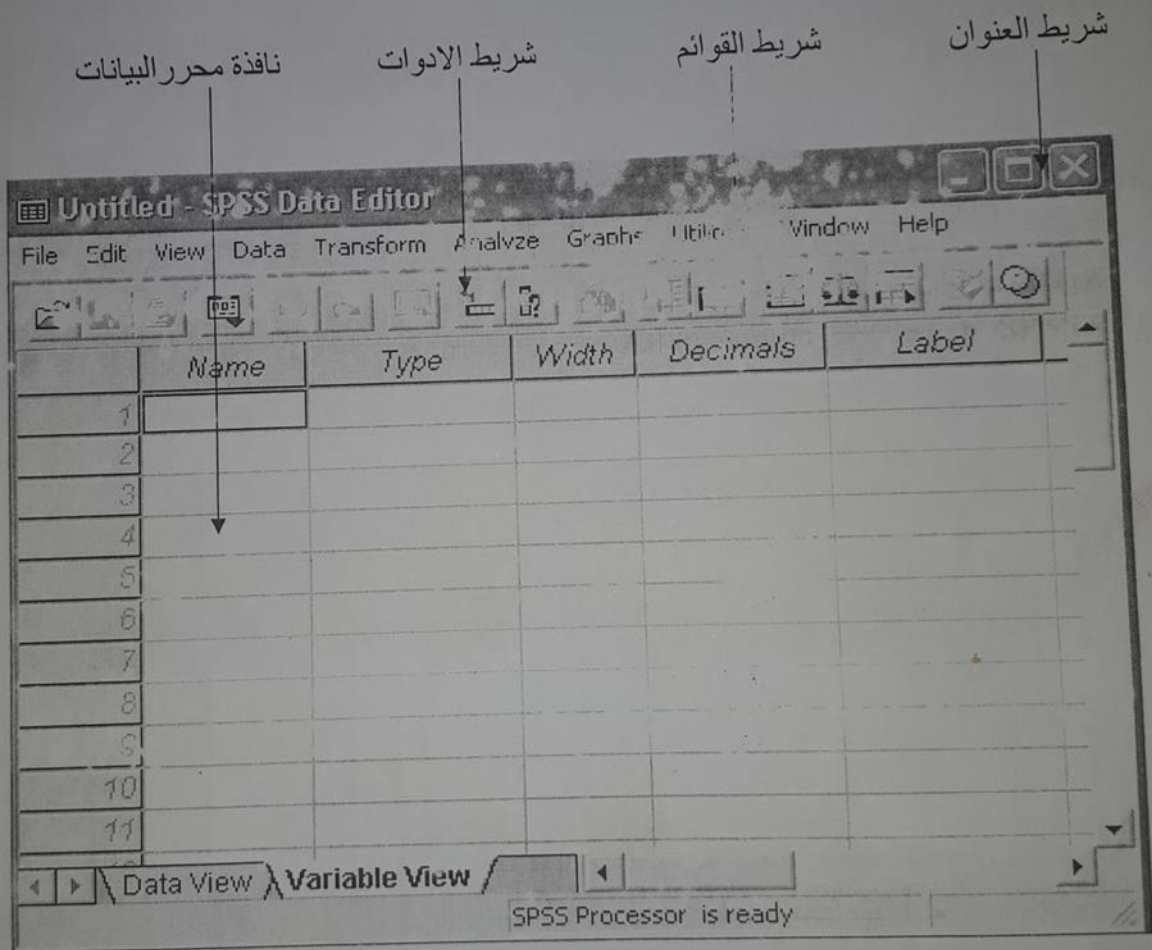 شريط العنوان
شريط القوائم
شريط الادوات
نافذة محرر البيانات
Untitled - SPSS Data Editor
File Edit View Data Transform Analyze Graphs Window Help
Name Type Width Decimals Label
1
2
3
4
5
6
7
8
9
10
11
Data View Variable View
SPSS Processor is ready